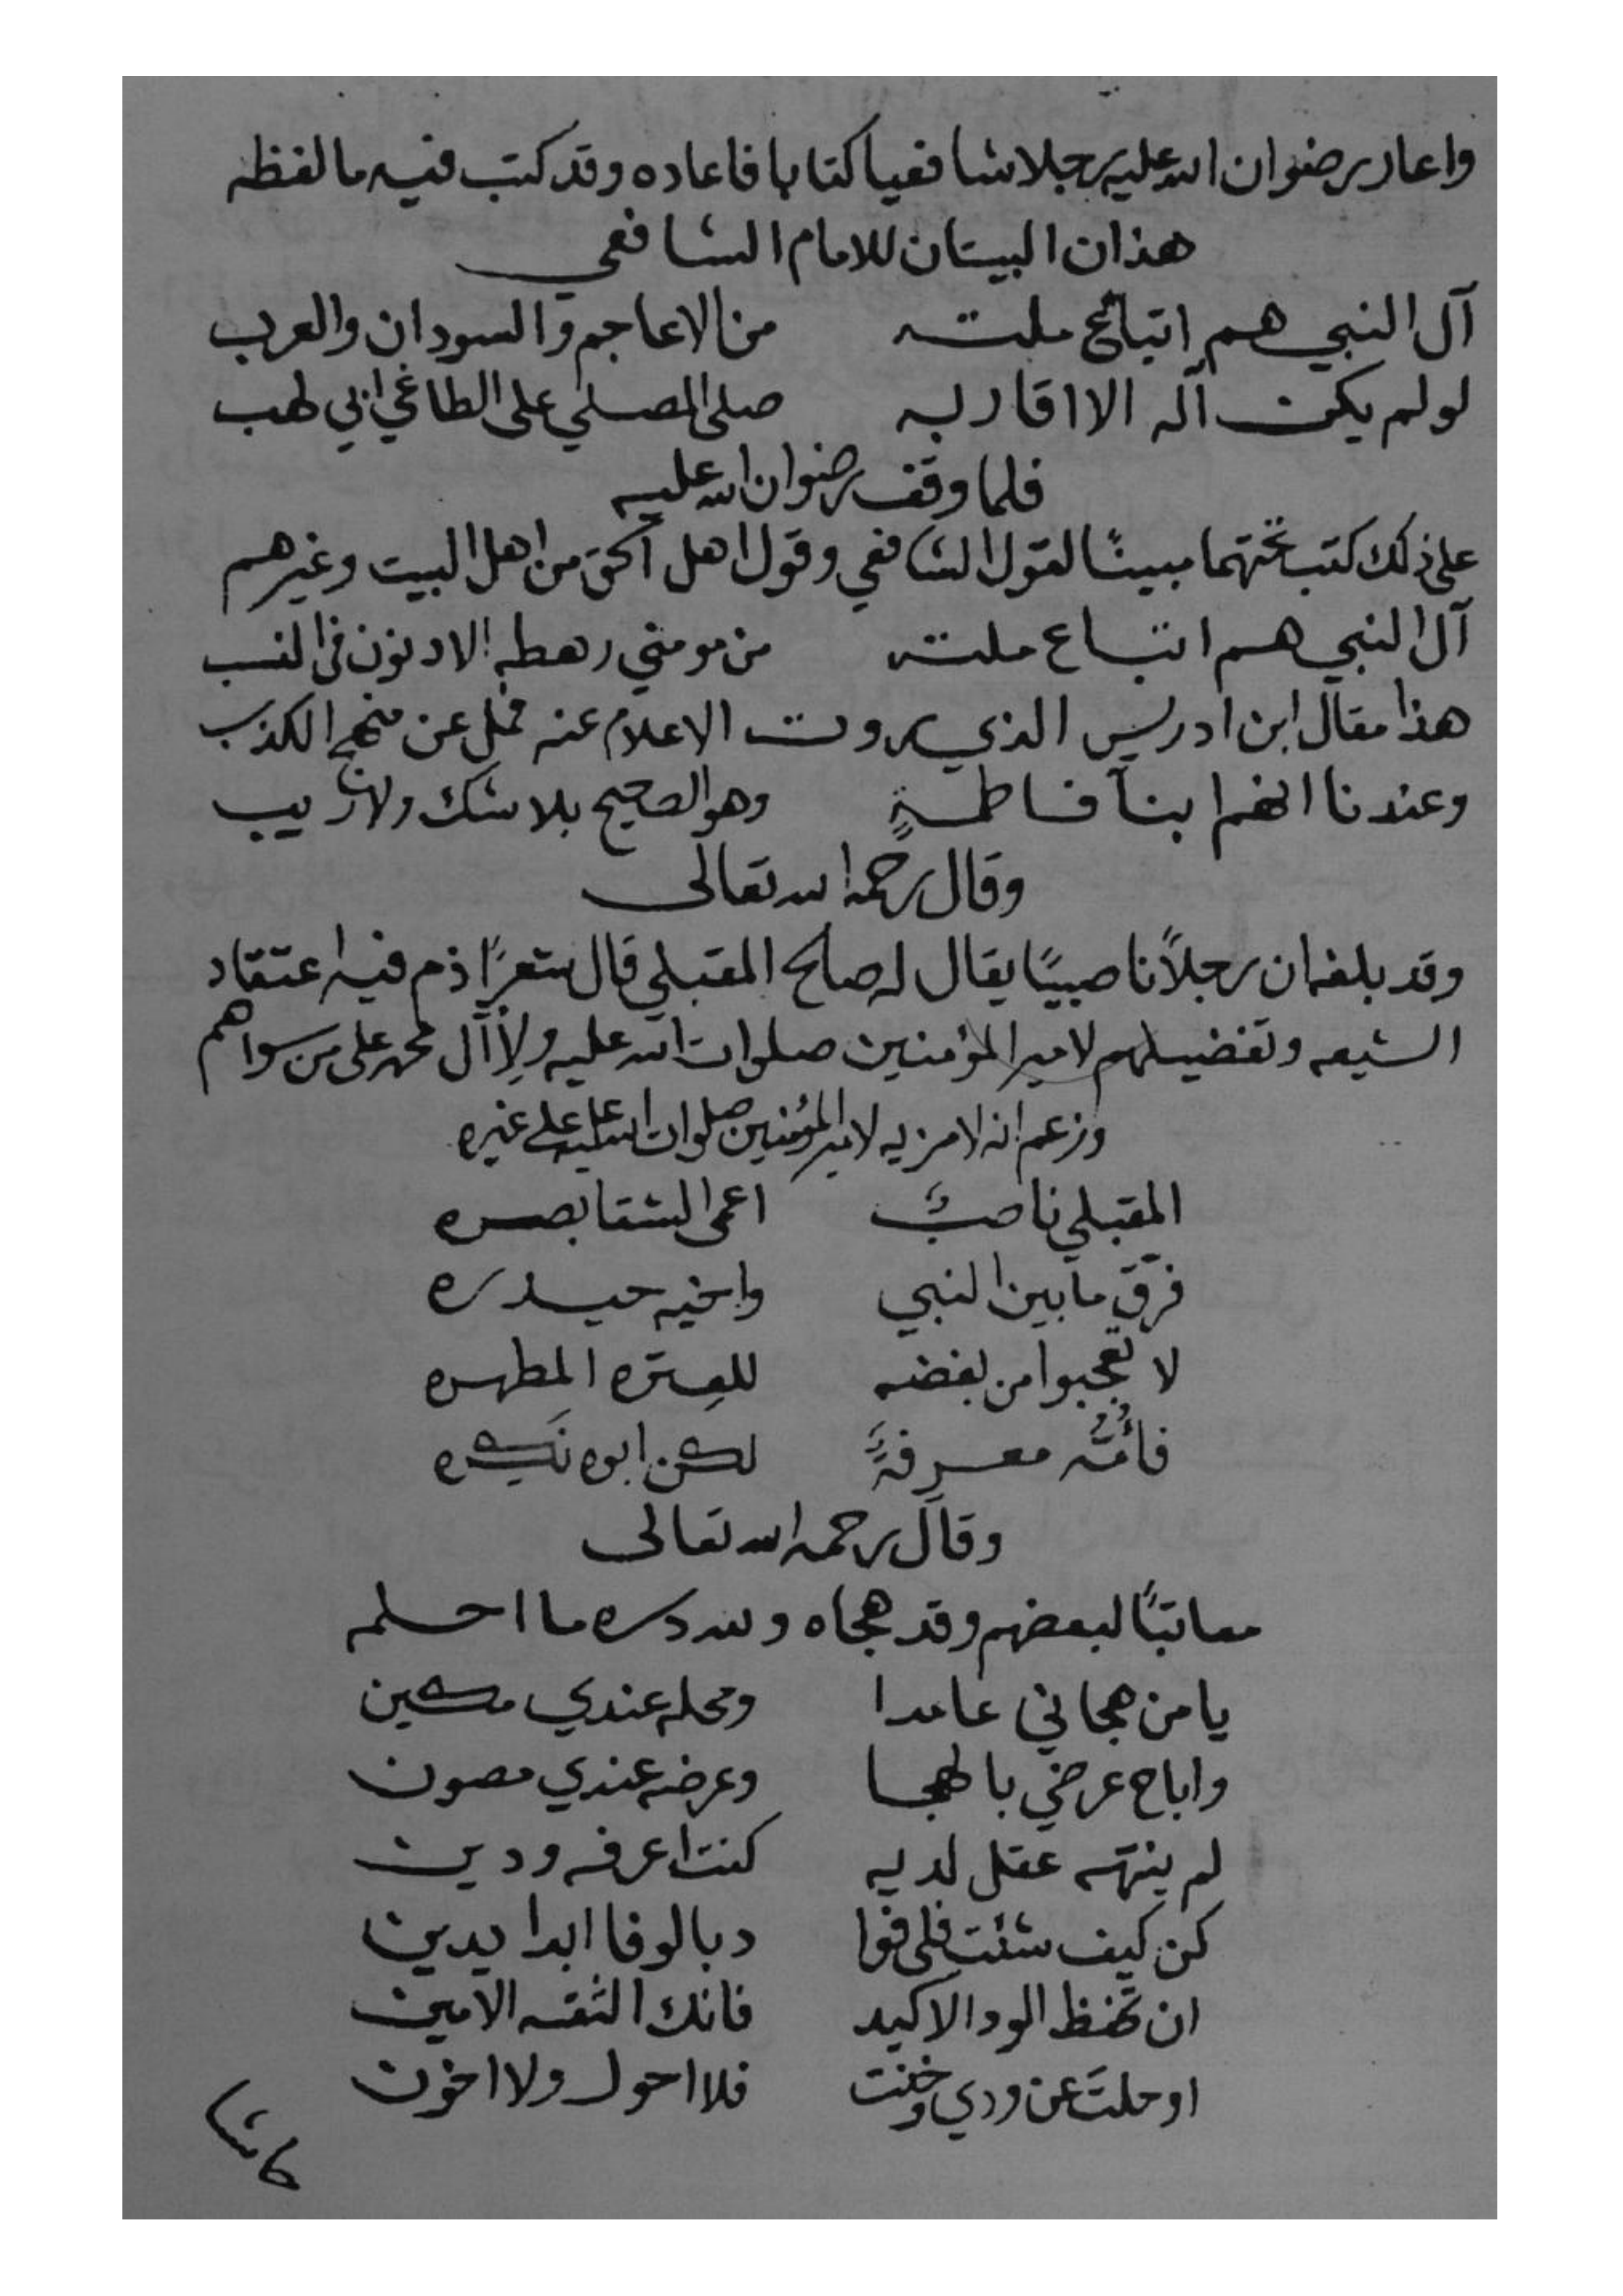 واعار رضوان الله عليه رجلا شافعيا كتابا فاعاده وقد كتب فيه ما لفظه
هذان البيتان للامام الشافعي
آل النبي هم اتباع ملته من الاعاجم والسودان والعرب
لو لم يكن آله الا اقاربه صلى المصلي على الطاغي ابي لهب
فلما وقف رضوان الله عليه
على ذلك كتب تحتهما مبينًا لقول الشافعي وقول اهل الحق من اهل البيت وغيرهم
آل النبي هم اتباع ملته من مومني رهطه الادنون في النسب
هذا مقال ابن ادريس الذي روت الاعلام عنه فمل عن منهج الكذب
وعندنا انهم ابنآ فاطمةٍ وهو الصحيح بلا شك ولا ريب
وقال رحمه الله تعالى
وقد بلغه ان رجلاً ناصبيًا يقال له صالح المقبلي قال شعرًا ذم فيه اعتقاد
الشيعه وتفضيلهم لامير المؤمنين صلوات الله عليه ولِأآل محمد على من سواهم
وزعم انه لا مزيه لامير المؤمنين صلوات الله عليه على غيره
المقبلي ناصبيٌ اعمى الشقا بصره
فرّق ما بين النبي واخيه حيدره
لا تعجبوا من بغضه للعِتره المطهره
فأُمُّه معرِفةٌ لكن ابوه نَكِره
وقال رحمه الله تعالى
معاتبًا لبعضهم وقد هجاه ولله دره ما احلمه
يا من هجاني عامدا ومحله عندي مكين
واباح عرضي بالهجا وعرضه عندي مصون
لم ينهه عقل لديه كنت اعرفه ودين
كن كيف شئت فلي فوا د بالوفا ابدا يدين
ان تحفظ الود الاكيد فانك الثقه الامين
او حلتَ عن ودي وخنت فلا احول ولا اخون